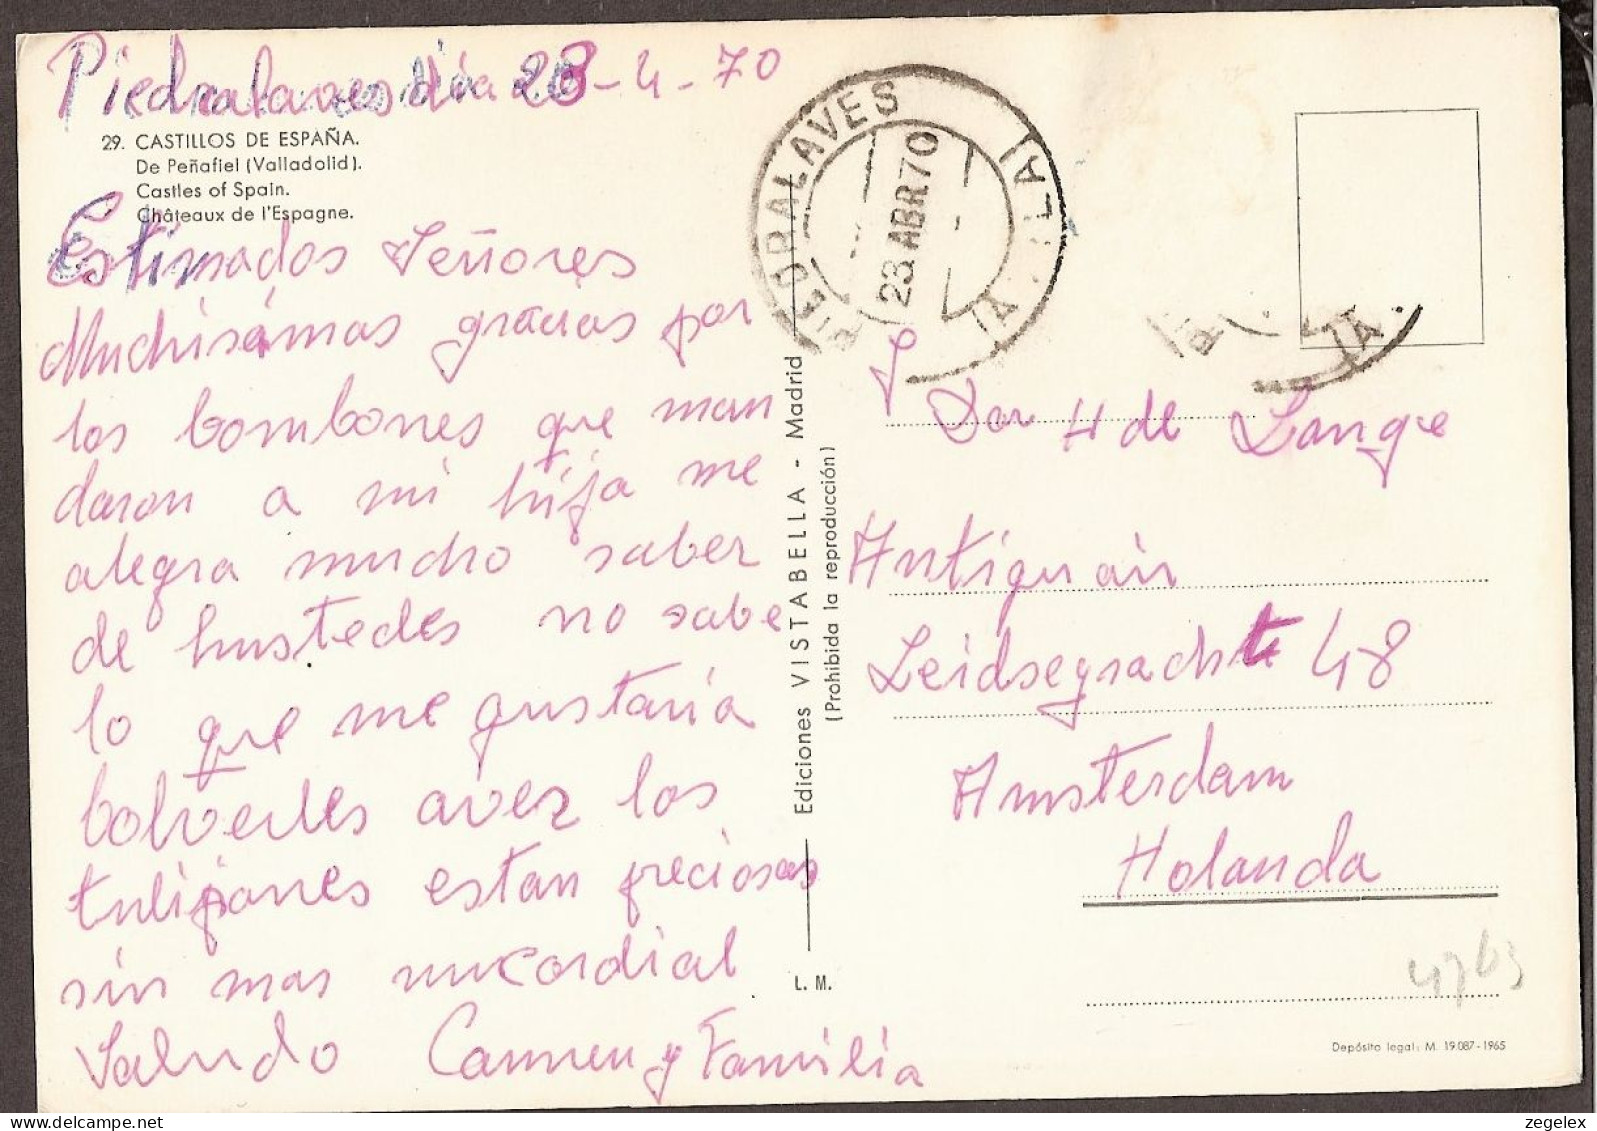 Piedralaves día 23-4-70
29. CASTILLOS DE ESPAÑA.
De Peñafiel (Valladolid).
Castles of Spain.
Châteaux de l'Espagne.
Estimados Señores
Muchisimas gracias por
los bombones que man
daron a mi hija me
alegra mucho saber
de hustedes no sabe
lo que me gustaria
bolverles aver los
tulipanes estan preciosas
sin mas un cordial
Saludo Carmen y Familia
Ediciones VISTABELLA - Madrid
(Prohibida la reproducción)
L. M.
PIEDRALAVES
23 ABR 70
H de Lange
Antiquair
Leidsegracht 48
Amsterdam
Holanda
4763
Depósito legal: M. 19.087 - 1965
zegelex